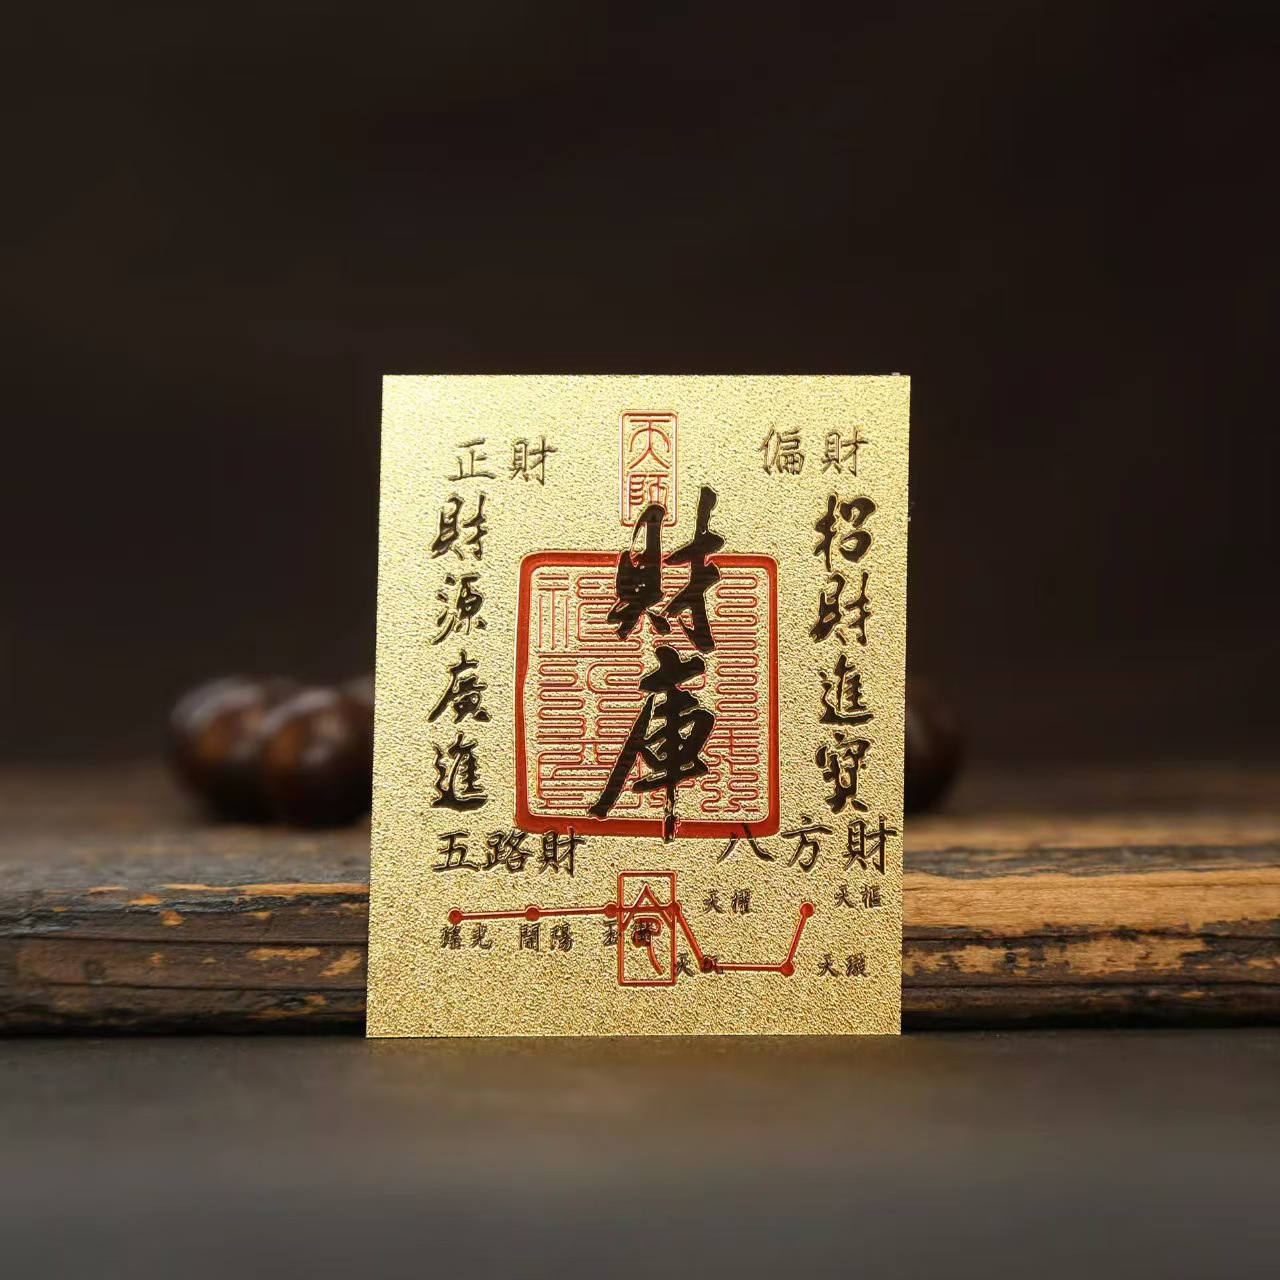 天師
正財
偏財
財庫
招財進寶
財源廣進
五路財
八方財
命
天樞
天權
搖光
開陽
玉衡
天璣
天璇